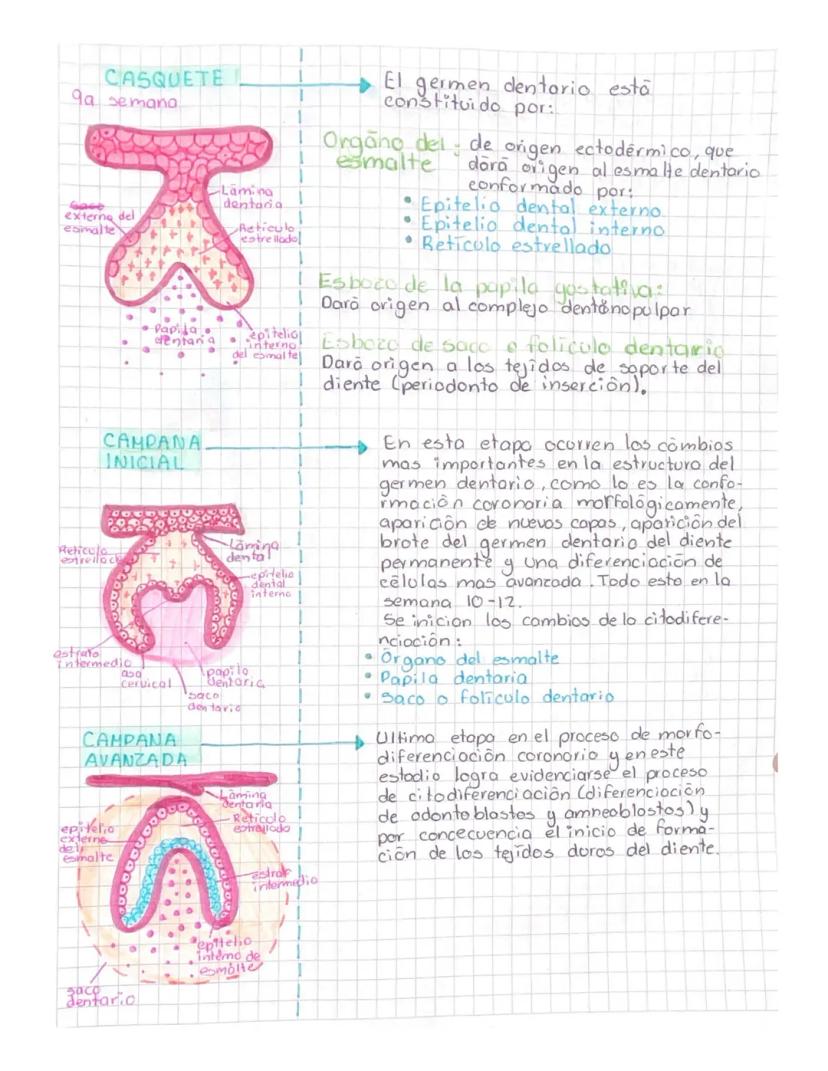 CASQUETE
9a semana
El germen dentario está
constituido por:
Orgáno del : de origen ectodérmico, que
esmalte dará origen al esmalte dentario
conformado por:
• Epitelio dental externo
• Epitelio dental interno
• Retículo estrellado
Esbozo de la papila gostativa:
Dará origen al complejo dentónopulpar
Esbozo de saco o folículo dentario
Dará origen a los tejidos de soporte del
diente (periodonto de inserción).
Lámina
dentaria
externa del
esmalte
Retículo
estrellado
Papila
dentaria
epitelio
interno
del esmalte
CAMPANA
INICIAL
En esta etapa ocurren los cambios
mas importantes en la estructura del
germen dentario, como lo es la confo-
rmación coronaria morfológicamente,
aparición de nuevas capas, aparición del
brote del germen dentario del diente
permanente y una diferenciación de
células mas avanzada. Todo esto en la
semana 10-12.
Se inician los cambios de la citodifere-
nciación:
• Órgano del esmalte
• Papila dentaria
• Saco o folículo dentario
Retículo
estrellado
Lámina
dental
epitelio
dental
interno
estrato
intermedio
asa
cervical
papila
dentaria
saco
dentario
CAMPANA
AVANZADA
Ultima etapa en el proceso de morfo-
diferenciación coronario y en este
estadio logra evidenciarse el proceso
de citodiferenciación (diferenciación
de odontoblastos y amneoblostos) y
por concecuencia el inicio de forma-
ción de los tejidos duros del diente.
Lámina
dentaria
Retículo
estrellado
epitelio
externo
del
esmalte
estrato
intermedio
epitelio
interno de
esmalte
saco
dentario